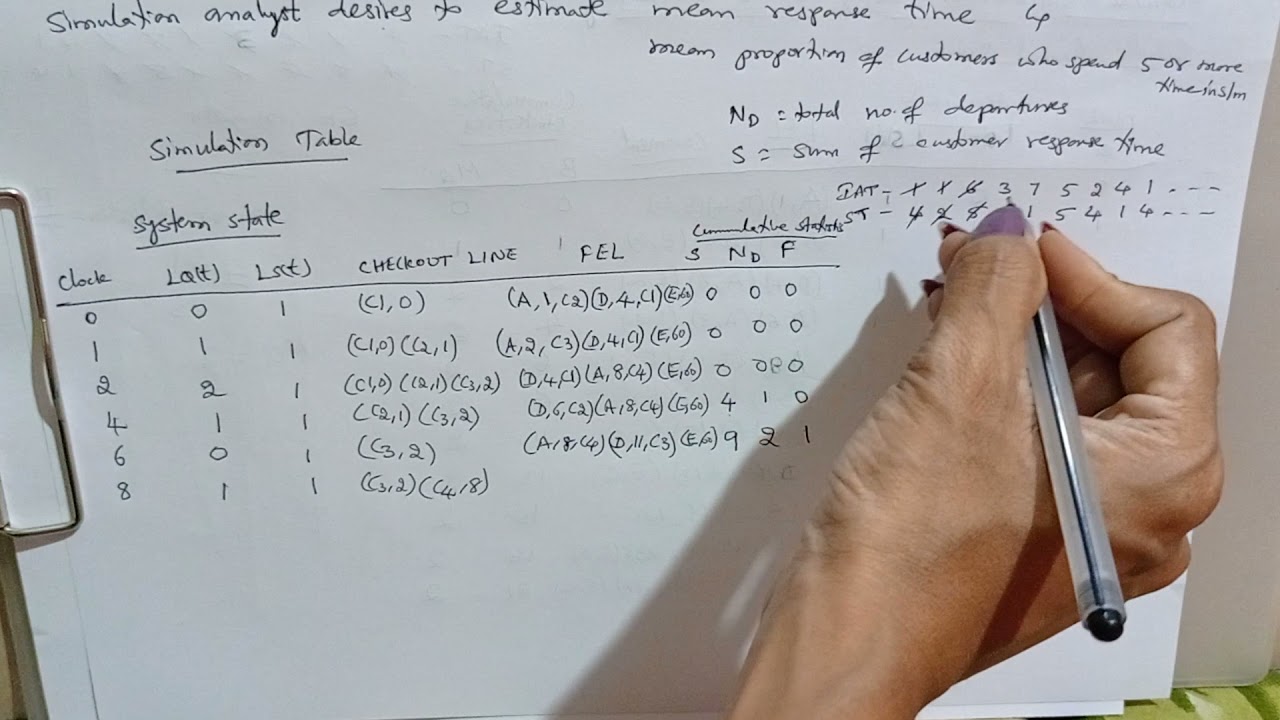 Simulation analyst desires to estimate mean response time &
mean proportion of customers who spend 5 or more
time in s/m
ND = total no. of departures
S = sum of customer response time
Simulation Table
IAT - 1 1 6 3 7 5 2 4 1 ----
ST - 4 2 5 1 5 4 1 4 ----
System state
Cummulative statistics
Clock LQ(t) LS(t) CHECKOUT LINE FEL S ND F
0 0 1 (C1,0) (A,1,C2)(D,4,C1)(E,60) 0 0 0
1 1 1 (C1,0)(C2,1) (A,2,C3)(D,4,C1)(E,60) 0 0 0
2 2 1 (C1,0)(C2,1)(C3,2) (D,4,C1)(A,8,C4)(E,60) 0 0 0
4 1 1 (C2,1)(C3,2) (D,6,C2)(A,8,C4)(E,60) 4 1 0
6 0 1 (C3,2) (A,8,C4)(D,11,C3)(E,60) 9 2 1
8 1 1 (C3,2)(C4,8)